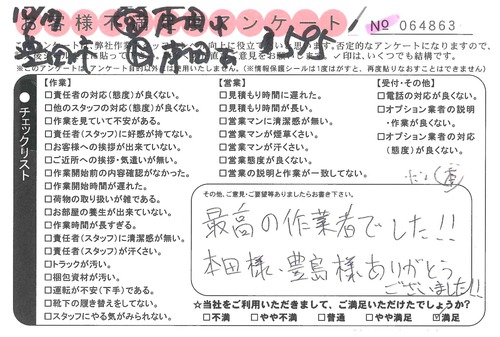 お客様不満足アンケート
No 064863
アンケートは、弊社作業
向上に役立て
否定的なアンケートになりますので、
✓印は、いくつでも結構です。
(※情報保護シールは1度はがすと、再度貼りなおすことはできません)
●チェックリスト
【作業】
□責任者の対応(態度)が良くない。
□他のスタッフの対応(態度)が良くない。
□作業を見ていて不安がある。
□責任者(スタッフ)に好感が持てない。
□お客様への挨拶が出来ていない。
□ご近所への挨拶・気遣いが無い。
□作業開始前の内容確認がなかった。
□作業開始時間が遅れた。
□荷物の取り扱いが雑である。
□お部屋の養生が出来ていない。
□作業時間が長すぎる。
□責任者(スタッフ)に清潔感が無い。
□責任者(スタッフ)が汗くさい。
□トラックが汚い。
□梱包資材が汚い。
□運転が不安(下手)である。
□靴下の履き替えをしてない。
□スタッフにやる気がみられない。
【営業】
□見積もり時間に遅れた。
□見積もり時間が長い。
□営業マンに清潔感が無い。
□営業マンが煙草くさい。
□営業マンが汗くさい。
□営業態度が良くない。
□営業の説明と作業が一致してない。
【受付・その他】
□電話の対応が良くない。
□オプション業者の説明
・作業が良くない。
□オプション業者の対応
(態度)が良くない。
その他、ご意見・ご要望等ありましたらお書き下さい。
最高の作業者でした!!
本田様、豊島様ありがとう
ございました!!
☆当社をご利用いただきまして、ご満足いただけたでしょうか?
□不満 □やや不満 □普通 □やや満足 ☑満足